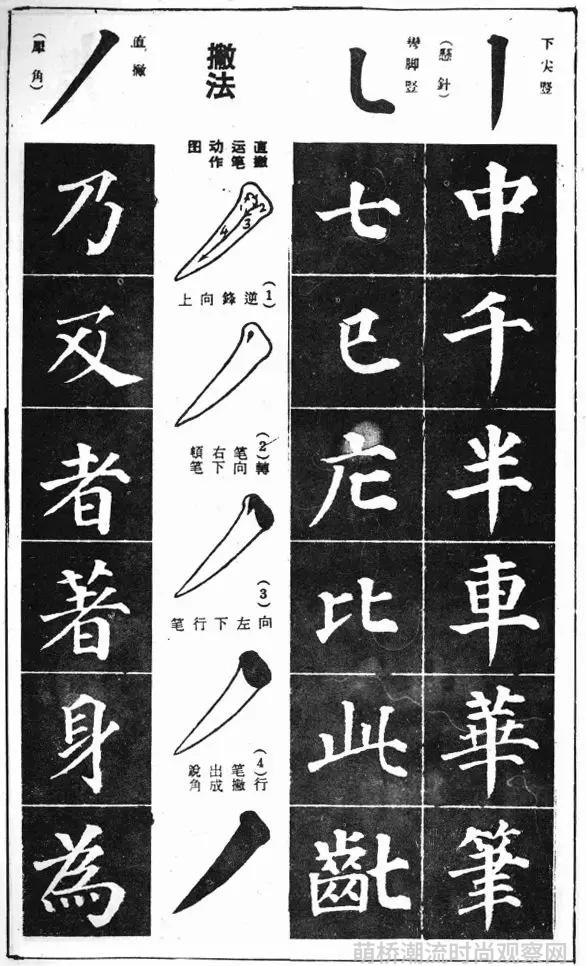 下尖豎
(懸針)
中
千
半
車
華
筆
彎脚豎
七
巳
比
此
齔
撇法
直撇
运笔
动作
图
1 2 3 4
(1)逆鋒向上
(2)轉
笔向
右下
頓笔
(3)
向左下行笔
(4)行
笔撇
出成
銳角
直撇
(犀角)
乃
及
者
著
身
為
萌桥潮流时尚观察网